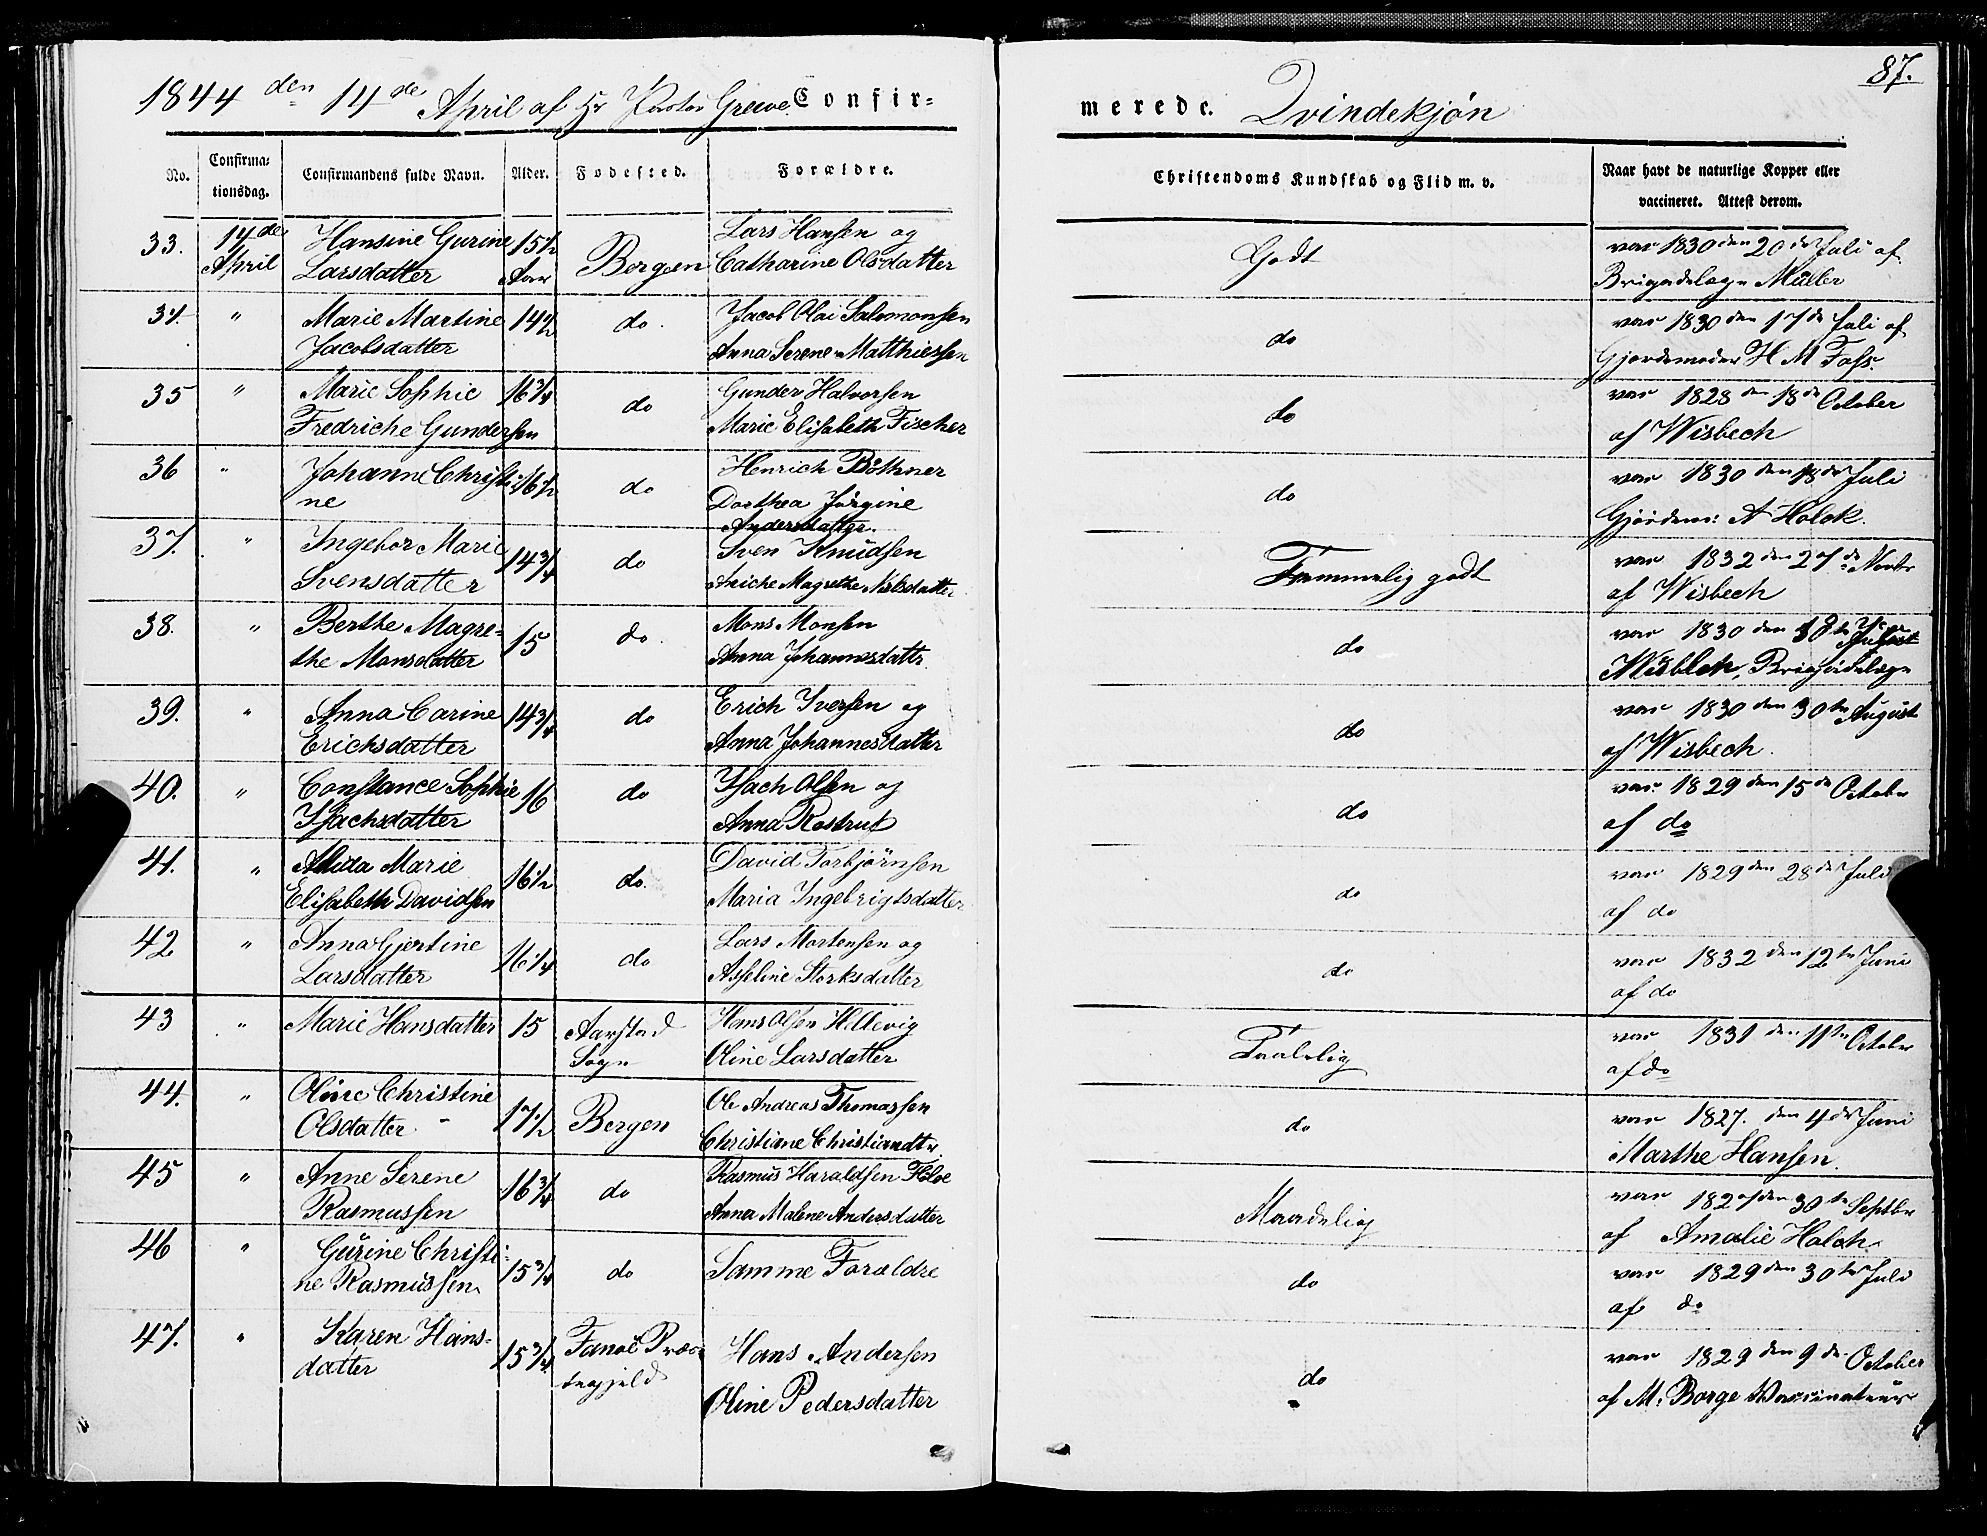 87.
1844 den 14de April af Hr Pastor Greve. Confir=
merede. Qvindekjøn
No. Confirma=tionsdag. Confirmandens fulde Navn. Alder. Fødested. Forældre.
Christendoms Kundskab og Flid m. v. Naar havt de naturlige Kopper eller vaccineret. Attest derom.
33. 14de Hansine Gurine 15½ Lars Hansen og
April Larsdatter Aar Bergen Catharine Olsdatter
Godt
vac 1830 den 20de Juli af
Brigadelæge Müller
34. " Marie Martine 14½ do. Jacob Olai Salomonsen
Jacobsdatter Anna Serene Matthiessen
do
vac 1830 den 17de Juli af
Gjordemoder H M Foss.
35 " Marie Sophie 16¾ do Gunder Halvorsen
Fredriche Gundersen Marie Elisabeth Fischer
do
vac 1828 den 18de October
af Wisbech
36 " Johanne Christi 16½ do Henrich Böthner
ne Dorthea Jørgine
Andersdatter.
do
vac 1830 den 18de Juli
Gjördem: A Holck.
37. " Ingebor Marie 14¾ do Sven Knudsen
Svensdatter Aniche Magrethe Nilsdatter
Temmelig godt
vac 1832 den 27de Novbr
af Wisbech
38. " Berthe Magre= 15 do. Mons Monsen
the Monsdatter Anna Johannesdattr.
do
vac 1830 den
Wisbech, Brigadelæge
39. " Anna Carine 14¾ do Erich Iversen og
Erichsdatter Anna Johannesdatter
do
vac 1830 den 30te August
af Wisbech.
40. " Constance Sophie 16 do Isach Olsen og
Isachsdatter Anna Rostrup
do
vac 1829 den 15de Octobr
af do
41. " Alida Marie 16½ do. David Torbjörnsen
Elisabeth Davidsen Maria Ingebrigtsdatter
do
vac 1829 den 28de Juli
af do
42 " Anna Gjertine 16¼ do Lars Mortensen og
Larsdatter Asseline Storksdatter
do
vac 1832 den 12te Juni
af do
43 " Marie Hansdatter 15 Aarstad Hans Olsen Hillevig
Sogn Oline Larsdatter
Taalelig
vac 1831 den 11te Octobr
af do
44. " Oline Christine 17½ Bergen Ole Andreas Thomassen
Olsdatter. Christiane Christiandtr.
do
vac 1827. den 4de Juni
Marthe Hansen.
45 " Anne Serene 16¾ do Rasmus Haraldsen
Rasmussen Anna Malene Andersdatter
Maadelig
vac 1827 den 30te Septbr
af Amalie Holch.
46 " Gürine Christi= 15¾ do Samme Forældre
ne Rasmussen
do
vac 1829 den 30te Juli
af do
47. " Karen Hans= 15¾ Fanöe Præs Hans Andersen
datter tegjeld Oline Pedersdatter
do
vac 1829 den 9de October
af M. Borge Vaccinateur